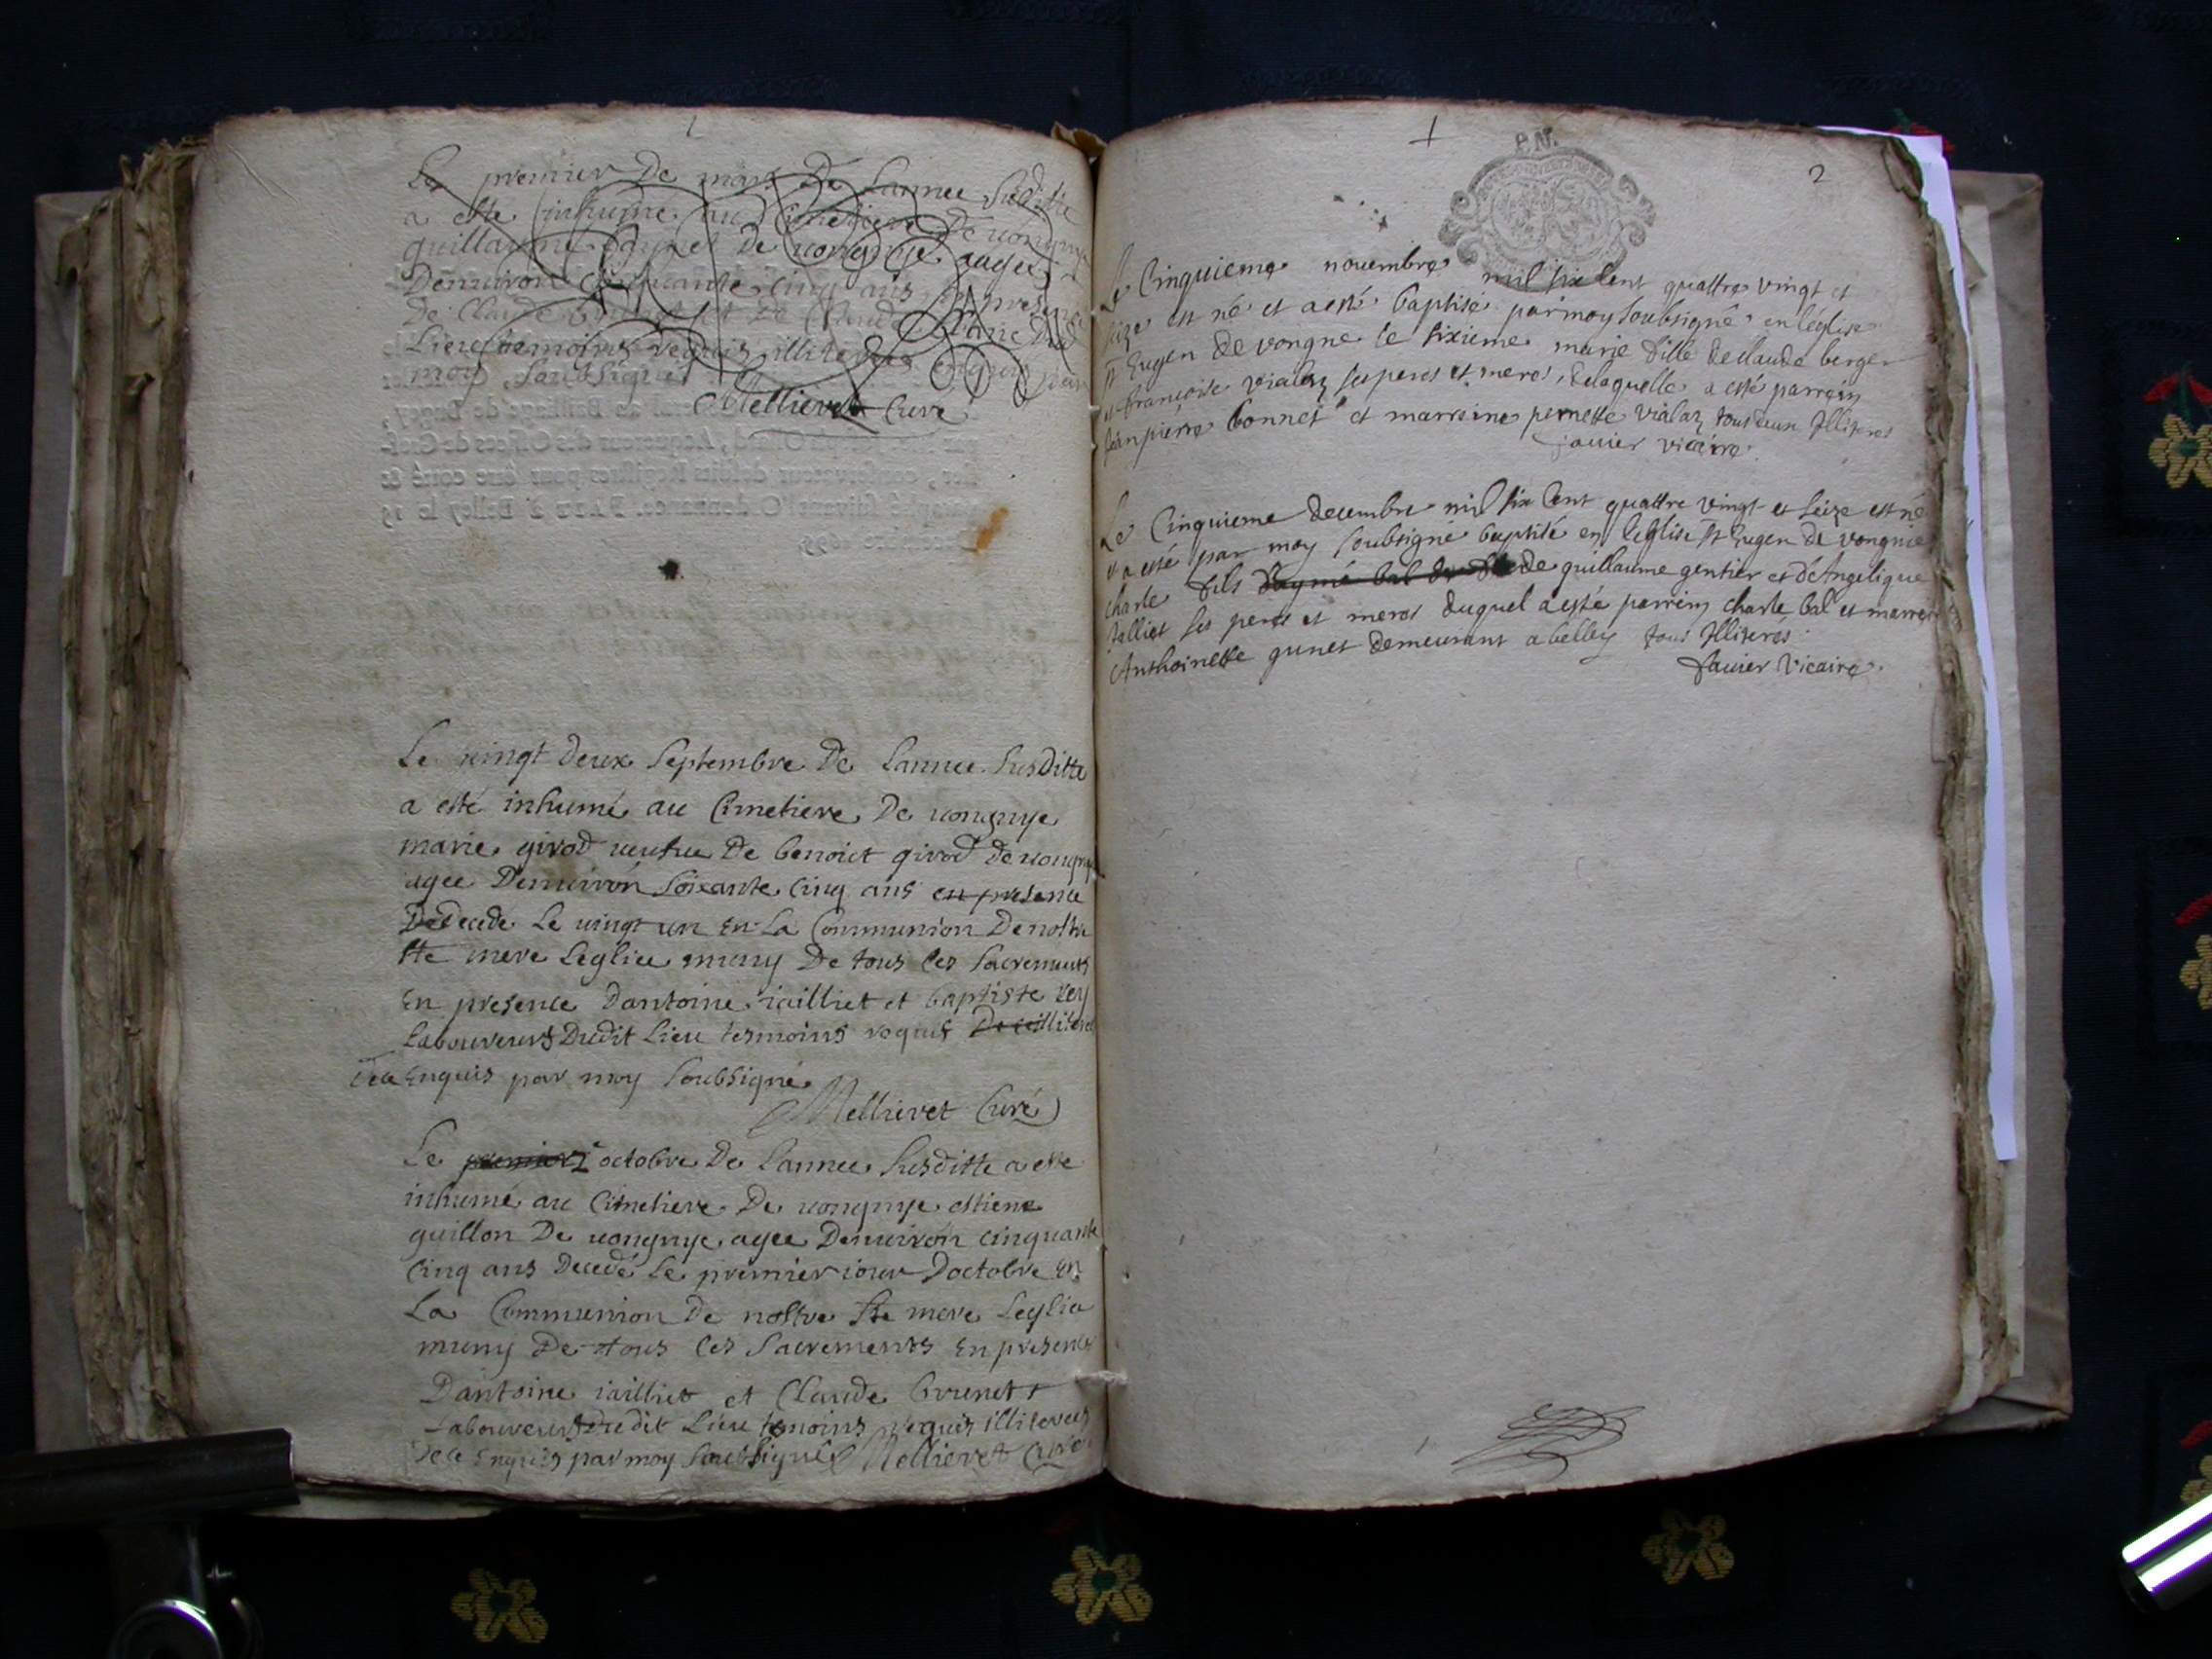 Le premier De mars De Lannee Susditte
a esté inhumé au Cimetiere De uongnye
guillaume De uongnye aagee
Denuiron Cinquante cinq ans en presence
De Claude et De Claude
Lieu temoins requis illiteres enquis par
moy Soubsigné
Mellieret Curé
Le vingt deux Septembre De Lannee Susditte
a esté inhumé au Cimetiere De uongnye
marie girod ueufue De benoict girod De uongnye
agee Denuiron Soixante cinq ans en presence
De decede Le uingt un En La Communion De nostre
Ste mere Leglice muny De tous les Sacrements
En presence Dantoine iailliet et baptiste Rey
Laboureurs Dudit Lieu tesmoins requis De ce illiteres
De ce Enquis par moy Soubsigné
Mellieret Curé
Le premier 2 octobre De Lannee Susditte a este
inhumé au Cimetiere De uongnye estiene
guillon De uongnye agee Denuiron cinquante
Cinq ans Decedé Le premier iour Doctobre En
La Communion De nostre Ste mere Leglice
muny De tous les Sacrements En presence
Dantoine iailliet et Claude brunet
Laboureurs Dudit Lieu temoins requis illiteres
De ce Enquis par moy Soubsigné Mellieret Curé
P.N.
2
Le Cinquieme nouembre mil six cent quattre vingt et
seize est né et a esté baptisé par moy soubsigné en léglise
St Eugen de vongne le sixieme marie fille de claude berger
et françoise vialaz ses peres et meres, de laquelle a esté parrein
jean pierre bonnet et marreine pernette vialaz tous deux Illiteres
favier vicaire.
Le Cinquieme decembre mil six cent quattre vingt et seize est né
et a esté par moy soubsigné baptisé en leglise St Eugen de vongnie
charle fils de guillaume gentier et dAngelique
Jalliet ses peres et meres duquel a esté parrein charle bal et marreine
Anthoinette gunet demeurant a belley tous Illiterés.
favier vicaire.